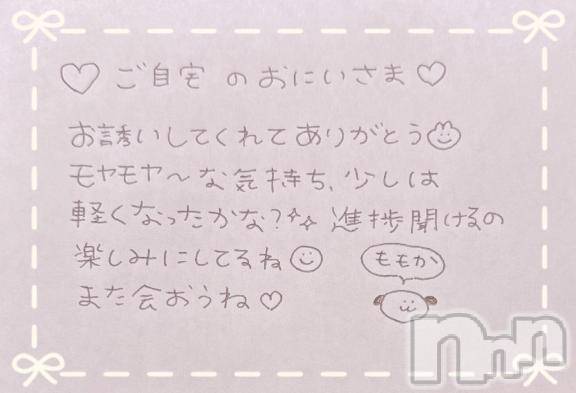 ♡ ご自宅 の おにいさま ♡
お誘いしてくれて ありがとう
モヤモヤ〜な気持ち、少しは
軽くなったかな? 進捗聞けるの
楽しみにしてるね
また会おうね♡
ももか
nnn